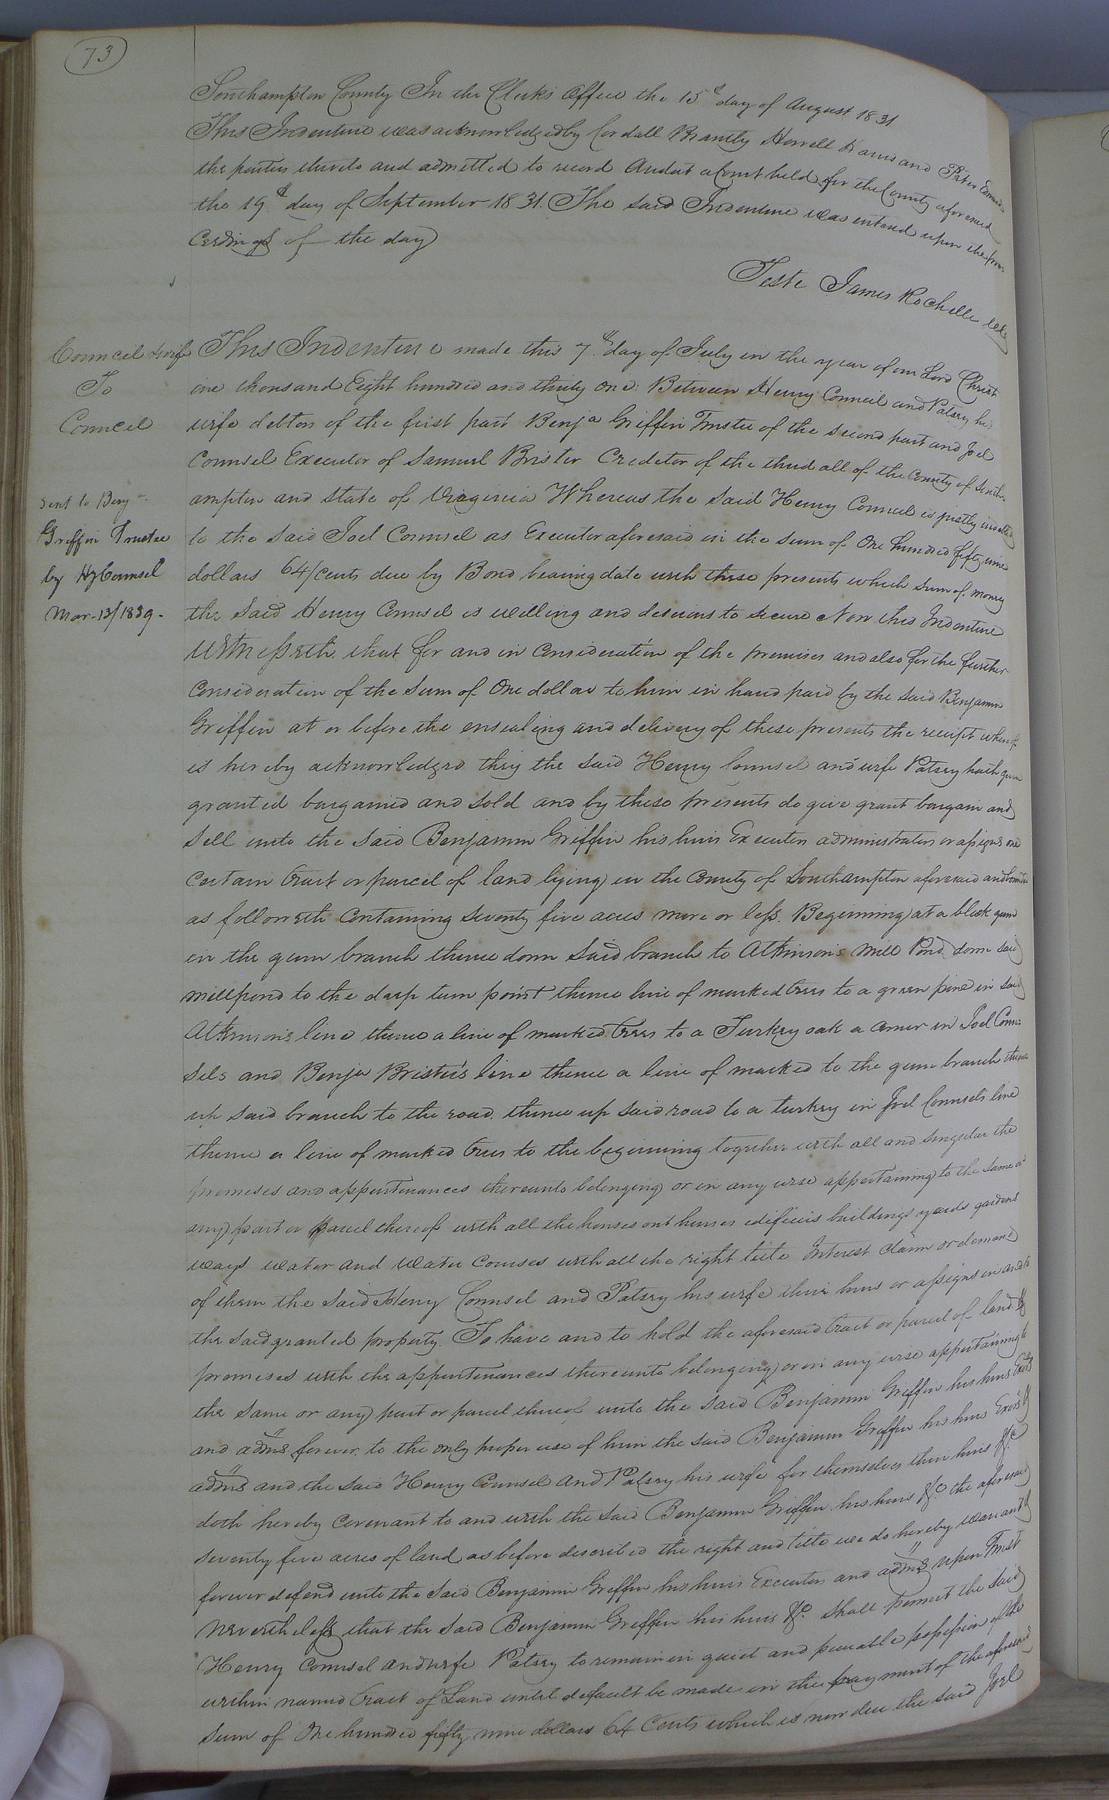 73
Southampton County In the Clerks Office the 15th day of August 1831
This Indenture was acknowledged by Cordall Brantly Howell Harris and Peter
the parties thereto and admitted to record And at a Court held for the County aforesaid
the 19th day of September 1831. The said Indenture was entered upon the pro-
ceedings of the day
Teste James Rochelle
Council & wife
To
Council
sent to Benj
Griffin Trustee
by Hy Counsel
Mar-13/1839-
This Indenture made this 7th day of July in the year of our Lord Christ
one thousand Eight hundred and thirty one Between Henry Council and Patsey his
wife debtors of the first part Benja Griffin Trustee of the second part and Joel
Counsel Executor of Samuel Brister Creditor of the third all of the County of South-
ampton and state of Virginia Whereas the said Henry Council is justly indebted
to the said Joel Counsel as Executor aforesaid in the sum of One hundred fifty nine
dollars 64/cents due by Bond bearing date with these presents which sum of money
the said Henry Counsel is willing and desirous to secure Now this Indenture
witnesseth that for and in Consideration of the premises and also for the further
Consideration of the sum of One dollar to him in hand paid by the said Benjamin
Griffin at or before the ensealing and delivery of these presents the receipt whereof
is hereby acknowledged they the said Henry Counsel and wife Patsey hath given
granted bargained and sold and by these presents do give grant bargain and
sell unto the said Benjamin Griffin his heirs Executors administrators or assigns one
certain tract or parcel of land lying in the County of Southampton aforesaid and bounded
as followeth Containing seventy five acres more or less. Beginning at a black gum
in the gum branch thence down said branch to Atkinson's mill Pond down said
millpond to the deep turn point thence line of marked trees to a green pine in said
Atkinson's line thence a line of marked trees to a Turkey oak a corner in Joel Coun-
sels and Benja Brister's line thence a line of marked to the gum branch thence
up said branch to the road thence up said road to a turkey in Joel Counsels line
thence a line of marked trees to the beginning together with all and singular the
premises and appurtenances thereunto belonging or in any wise appertaining to the same or
any part or parcel thereof with all the houses out houses edifices buildings yards gardens
ways water and water courses with all the right title Interest claim or demand
of them the said Henry Counsel and Patsey his wife their heirs or assigns in and to
the said granted property. To have and to hold the aforesaid tract or parcel of land &
premises with the appurtenances thereunto belonging or in any wise appertaining to
the same or any part or parcel thereof unto the said Benjamin Griffin his heirs Exrs
and adms forever to the only proper use of him the said Benjamin Griffin his heirs Exors &
adms and the said Henry Counsel and Patsey his wife for themselves their heirs &c
doth hereby covenant to and with the said Benjamin Griffin his heirs &c the aforesaid
seventy five acres of land as before described the right and title we do hereby warrant &
forever defend unto the said Benjamin Griffin his heirs Executors and adms upon Trust
nevertheless that the said Benjamin Griffin his heirs &c shall permit the said
Henry Counsel and wife Patsey to remain in quiet and peaceable possession of the
within named tract of Land until default be made in the payment of the aforesaid
sum of One hundred fifty nine dollars 64 Cents which is now due the said Joel